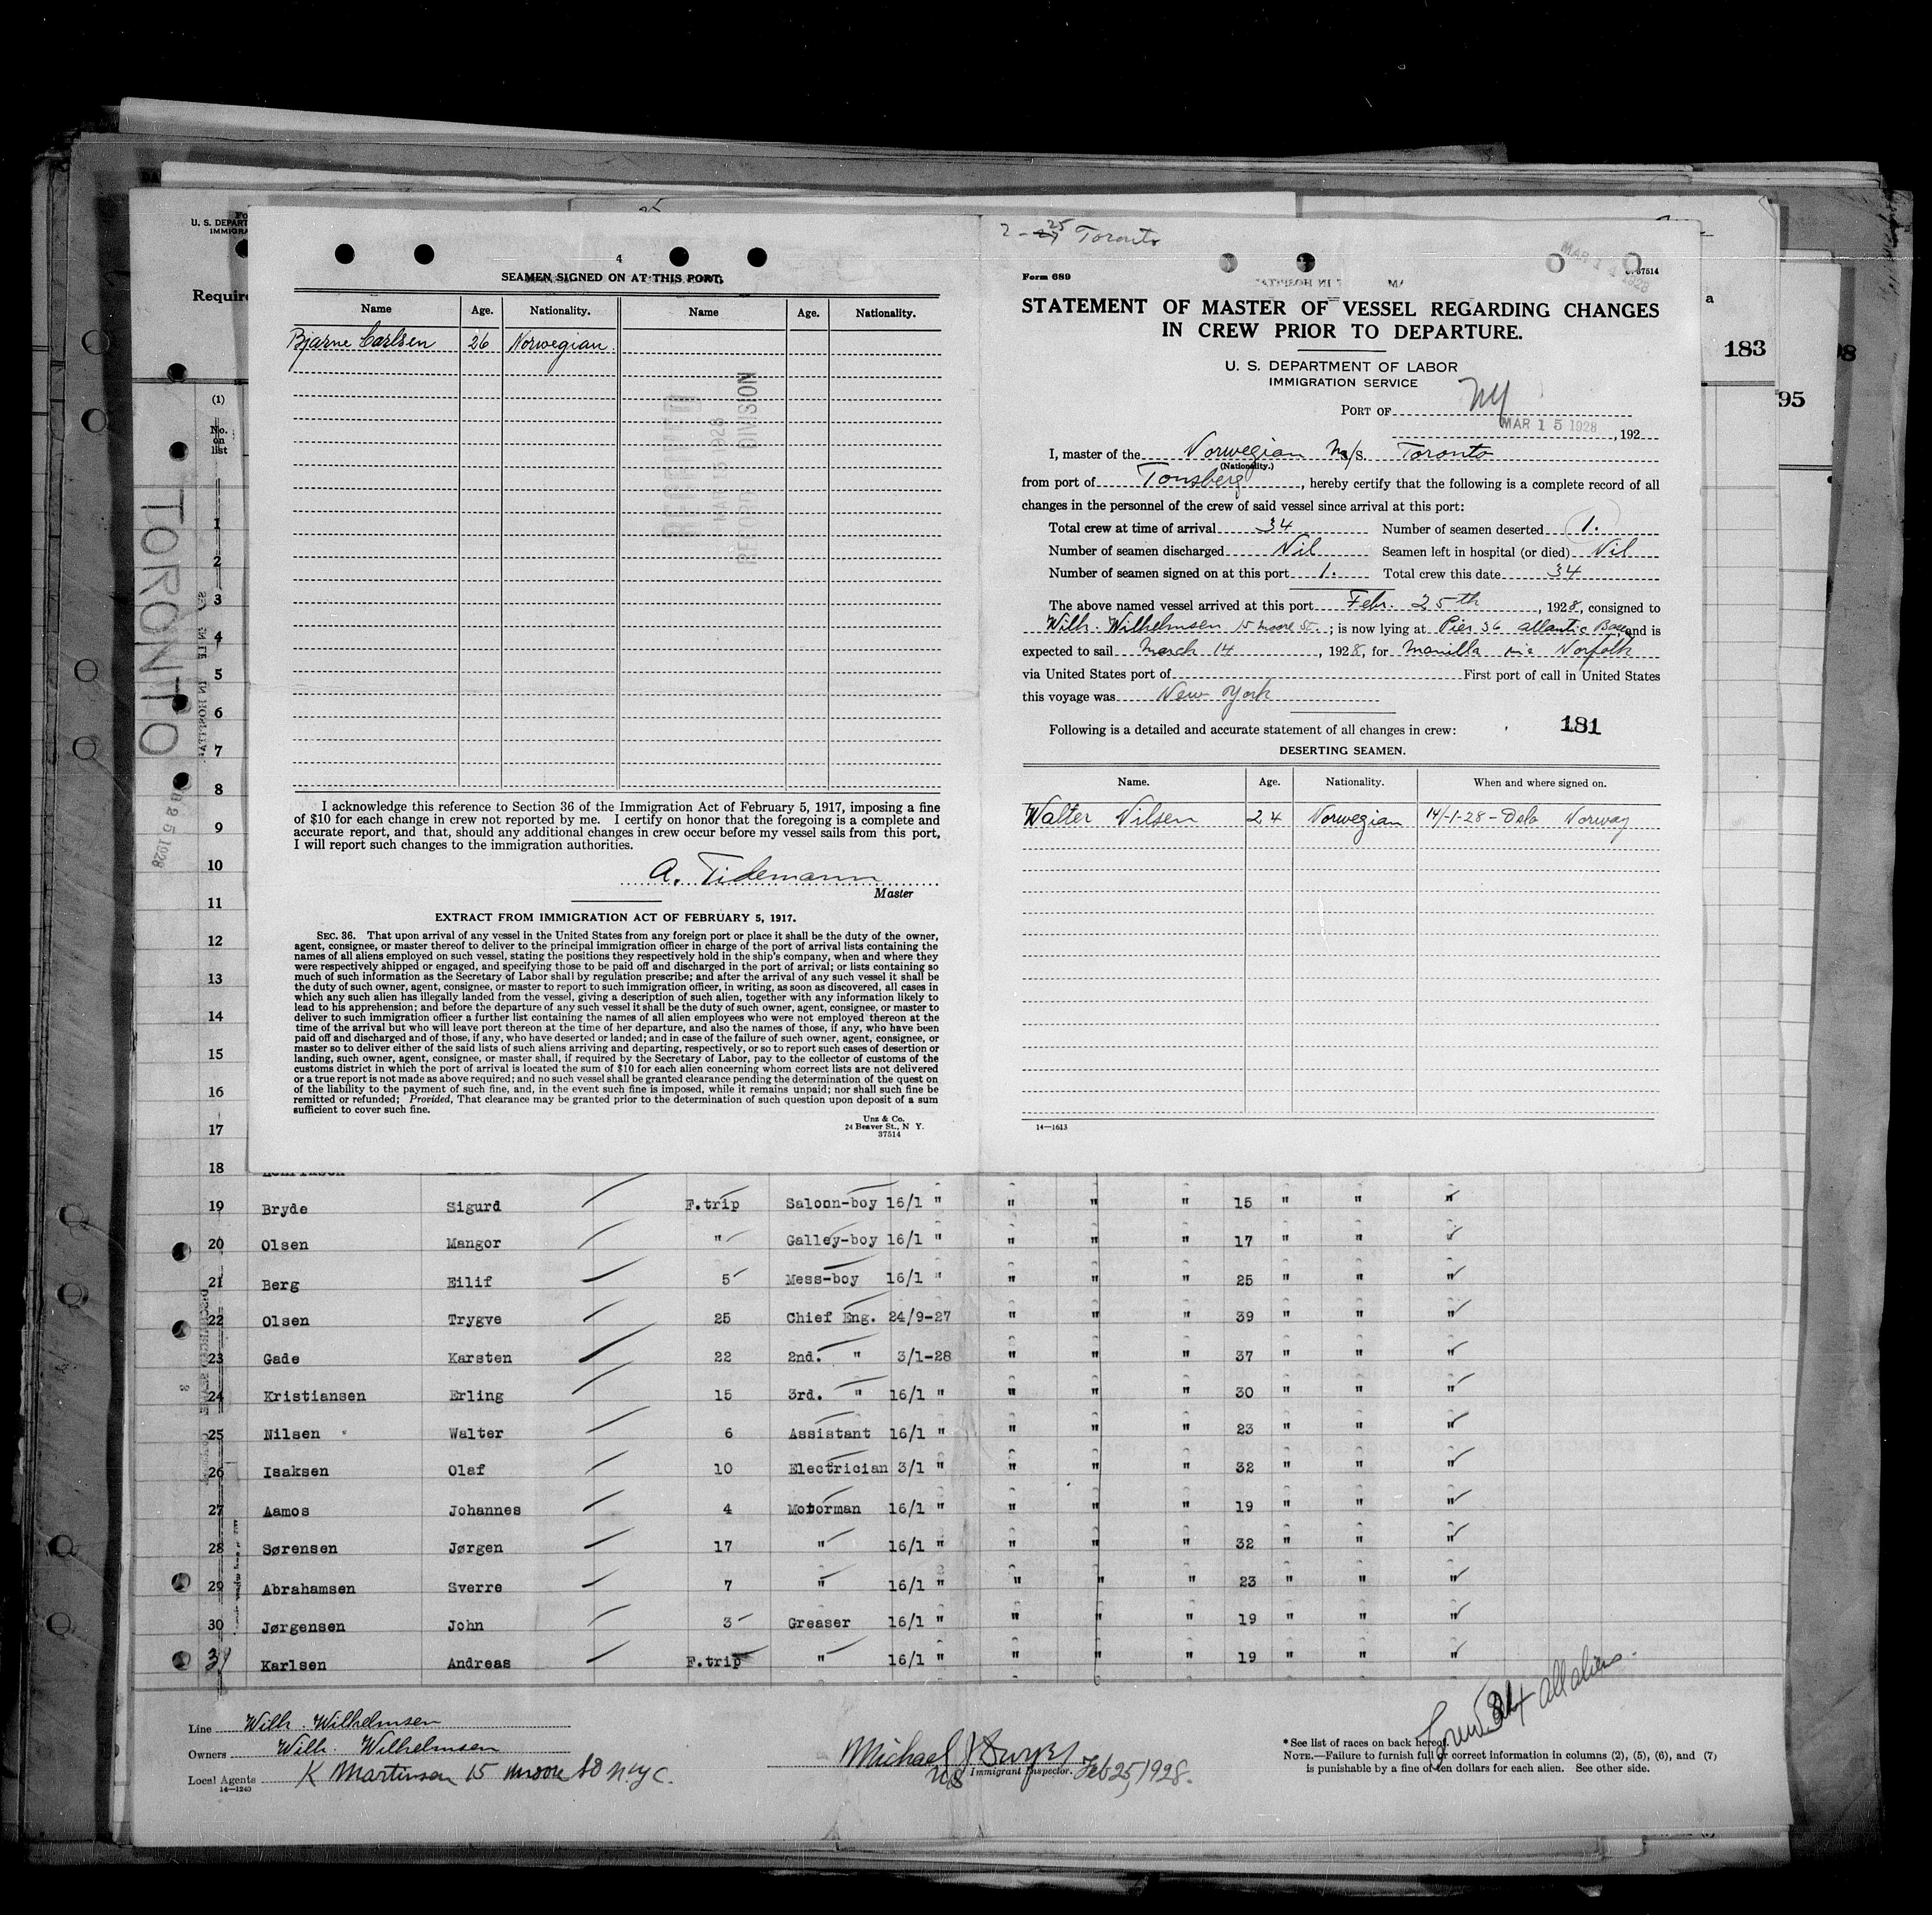 4
SEAMEN SIGNED ON AT THIS PORT.
Name Age. Nationality. Name Age. Nationality.
Bjarne Carlsen 26 Norwegian.
RECEIVED
MAR 15 1928
RECORD DIVISION
I acknowledge this reference to Section 36 of the Immigration Act of February 5, 1917, imposing a fine
of $10 for each change in crew not reported by me. I certify on honor that the foregoing is a complete and
accurate report, and that, should any additional changes in crew occur before my vessel sails from this port,
I will report such changes to the immigration authorities.
A. Tidemann
Master
EXTRACT FROM IMMIGRATION ACT OF FEBRUARY 5, 1917.
SEC. 36. That upon arrival of any vessel in the United States from any foreign port or place it shall be the duty of the owner,
agent, consignee, or master thereof to deliver to the principal immigration officer in charge of the port of arrival lists containing the
names of all aliens employed on such vessel, stating the positions they respectively hold in the ship's company, when and where they
were respectively shipped or engaged, and specifying those to be paid off and discharged in the port of arrival; or lists containing so
much of such information as the Secretary of Labor shall by regulation prescribe; and after the arrival of any such vessel it shall be
the duty of such owner, agent, consignee, or master to report to such immigration officer, in writing, as soon as discovered, all cases in
which any such alien has illegally landed from the vessel, giving a description of such alien, together with any information likely to
lead to his apprehension; and before the departure of any such vessel it shall be the duty of such owner, agent, consignee, or master to
deliver to such immigration officer a further list containing the names of all alien employees who were not employed thereon at the
time of the arrival but who will leave port thereon at the time of her departure, and also the names of those, if any, who have been
paid off and discharged and of those, if any, who have deserted or landed; and in case of the failure of such owner, agent, consignee, or
master so to deliver either of the said lists of such aliens arriving and departing, respectively, or so to report such cases of desertion or
landing, such owner, agent, consignee, or master shall, if required by the Secretary of Labor, pay to the collector of customs of the
customs district in which the port of arrival is located the sum of $10 for each alien concerning whom correct lists are not delivered
or a true report is not made as above required; and no such vessel shall be granted clearance pending the determination of the quest on
of the liability to the payment of such fine, and, in the event such fine is imposed, while it remains unpaid; nor shall such fine be
remitted or refunded; Provided, That clearance may be granted prior to the determination of such question upon deposit of a sum
sufficient to cover such fine.
Unz & Co.
24 Beaver St., N Y.
37514
2 - 25 Toronto
MAR 14 1928
Form 689 37514
STATEMENT OF MASTER OF VESSEL REGARDING CHANGES
IN CREW PRIOR TO DEPARTURE.
U. S. DEPARTMENT OF LABOR
IMMIGRATION SERVICE
PORT OF NY
MAR 15 1928, 192
I, master of the Norwegian M/S. Toronto
(Nationality.)
from port of Tonsberg, hereby certify that the following is a complete record of all
changes in the personnel of the crew of said vessel since arrival at this port:
Total crew at time of arrival 34 Number of seamen deserted 1.
Number of seamen discharged Nil Seamen left in hospital (or died) Nil
Number of seamen signed on at this port 1. Total crew this date 34
The above named vessel arrived at this port Febr. 25th, 1928, consigned to
Wilh. Wilhelmsen 15 Moore St.; is now lying at Pier 36 Atlantic Base, and is
expected to sail March 14, 1928, for Manilla via Norfolk
via United States port of First port of call in United States
this voyage was New York
Following is a detailed and accurate statement of all changes in crew:
181
DESERTING SEAMEN.
Name. Age. Nationality. When and where signed on.
Walter Nilsen 24 Norwegian 14/-1-28 - Oslo Norway
14—1613
U. S. DEPART
IMMIGRA
Require
a
183
95
(1)
No. on list
TORONTO
25 1928
1
2
3
4
5
6
7
8
9
10
11
12
13
14
15
16
17
18
19 Bryde Sigurd F.trip Saloon-boy 16/1 " " " " 15 " " "
20 Olsen Mangor " Galley-boy 16/1 " " " " 17 " " "
21 Berg Eilif 5 Mess-boy 16/1 " " " " 25 " " "
22 Olsen Trygve 25 Chief Eng. 24/9-27 " " " 39 " " "
23 Gade Karsten 22 2nd. " 3/1-28 " " " 37 " " "
24 Kristiansen Erling 15 3rd. " 16/1 " " " " 30 " " "
25 Nilsen Walter 6 Assistant 16/1 " " " " 23 " " "
26 Isaksen Olaf 10 Electrician 3/1 " " " " 32 " " "
27 Aamos Johannes 4 Motorman 16/1 " " " " 19 " " "
28 Sørensen Jørgen 17 " 16/1 " " " " 32 " " "
29 Abrahamsen Sverre 7 " 16/1 " " " " 23 " " "
30 Jørgensen John 3 Greaser 16/1 " " " " 19 " " "
31 Karlsen Andreas F.trip " 16/1 " " " " 19 " " "
Line Wilh. Wilhelmsen
Owners Wilh. Wilhelmsen
Local Agents K Martinsen 15 Moore St N.Y.C.
14—1240
Michael J Dwyer
Immigrant Inspector. Feb 25, 1928.
Crew 34 all aliens.
* See list of races on back hereof.
NOTE.—Failure to furnish full or correct information in columns (2), (5), (6), and (7)
is punishable by a fine of ten dollars for each alien. See other side.